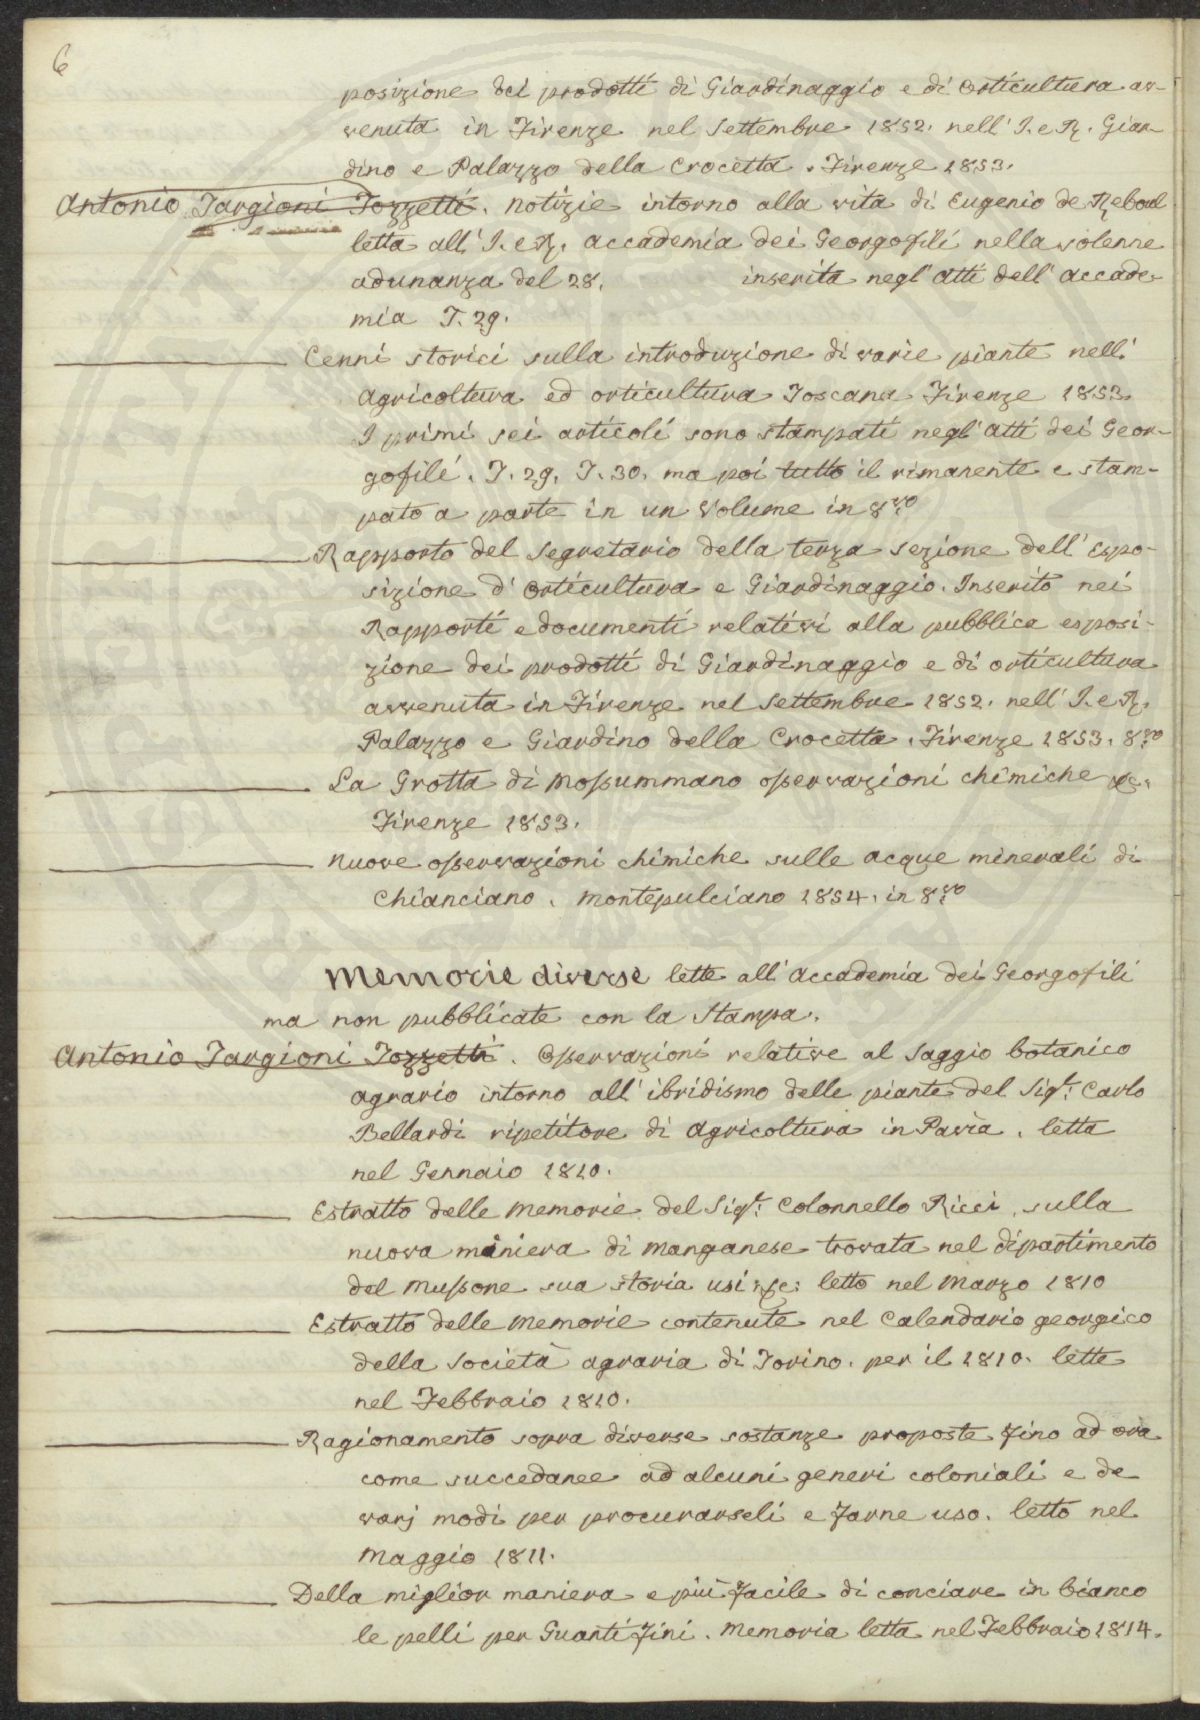 6
posizione dei prodotti di Giardinaggio e di Orticultura av-
venuta in Firenze nel Settembre 1852. nell' I. e R. Giar-
dino e Palazzo della Crocetta. Firenze 1853.
Antonio Targioni Tozzetti. Notizie intorno alla vita di Eugenio de Reboul
letta all' I. e R. Accademia dei Georgofili nella solenne
adunanza del 28. inserita negl' Atti dell' Accade-
mia T. 29.
Cenni storici sulla introduzione di varie piante nell'
Agricoltura ed orticultura Toscana Firenze 1853.
I primi sei articoli sono stampati negl' Atti dei Geor-
gofili. T. 29. T. 30. ma poi tutto il rimanente e stam-
pato a parte in un Volume in 8.vo
Rapporto del Segretario della terza sezione dell' Espo-
sizione d' Orticultura e Giardinaggio. Inserito nei
Rapporti e documenti relativi alla pubblica esposi-
zione dei prodotti di Giardinaggio e di orticultura
avvenuta in Firenze nel Settembre 1852. nell' I. e R.
Palazzo e Giardino della Crocetta. Firenze 1853. 8.vo
La Grotta di Monsummano osservazioni chimiche &c.
Firenze 1853.
Nuove osservazioni chimiche sulle acque minerali di
Chianciano. Montepulciano 1854. in 8.vo
Memorie diverse lette all' Accademia dei Georgofili
ma non pubblicate con la Stampa.
Antonio Targioni Tozzetti. Osservazioni relative al Saggio botanico
agrario intorno all' ibridismo delle piante del Sigr. Carlo
Bellardi ripetitore di Agricoltura in Pavia. letta
nel Gennaio 1810.
Estratto delle Memorie del Sigr. Colonnello Ricci, sulla
nuova miniera di Manganese trovata nel dipartimento
del Mussone sua storia usi &c: letto nel Marzo 1810
Estratto delle Memorie contenute nel Calendario georgico
della Società agraria di Torino. per il 1810. lette
nel Febbraio 1810.
Ragionamento sopra diverse sostanze proposte fino ad ora
come succedanee ad alcuni generi coloniali e de
varj modi per procurarseli e farne uso. letto nel
Maggio 1811.
Della miglior maniera e più facile di conciare in bianco
le pelli per Guanti fini. Memoria letta nel Febbraio 1814.